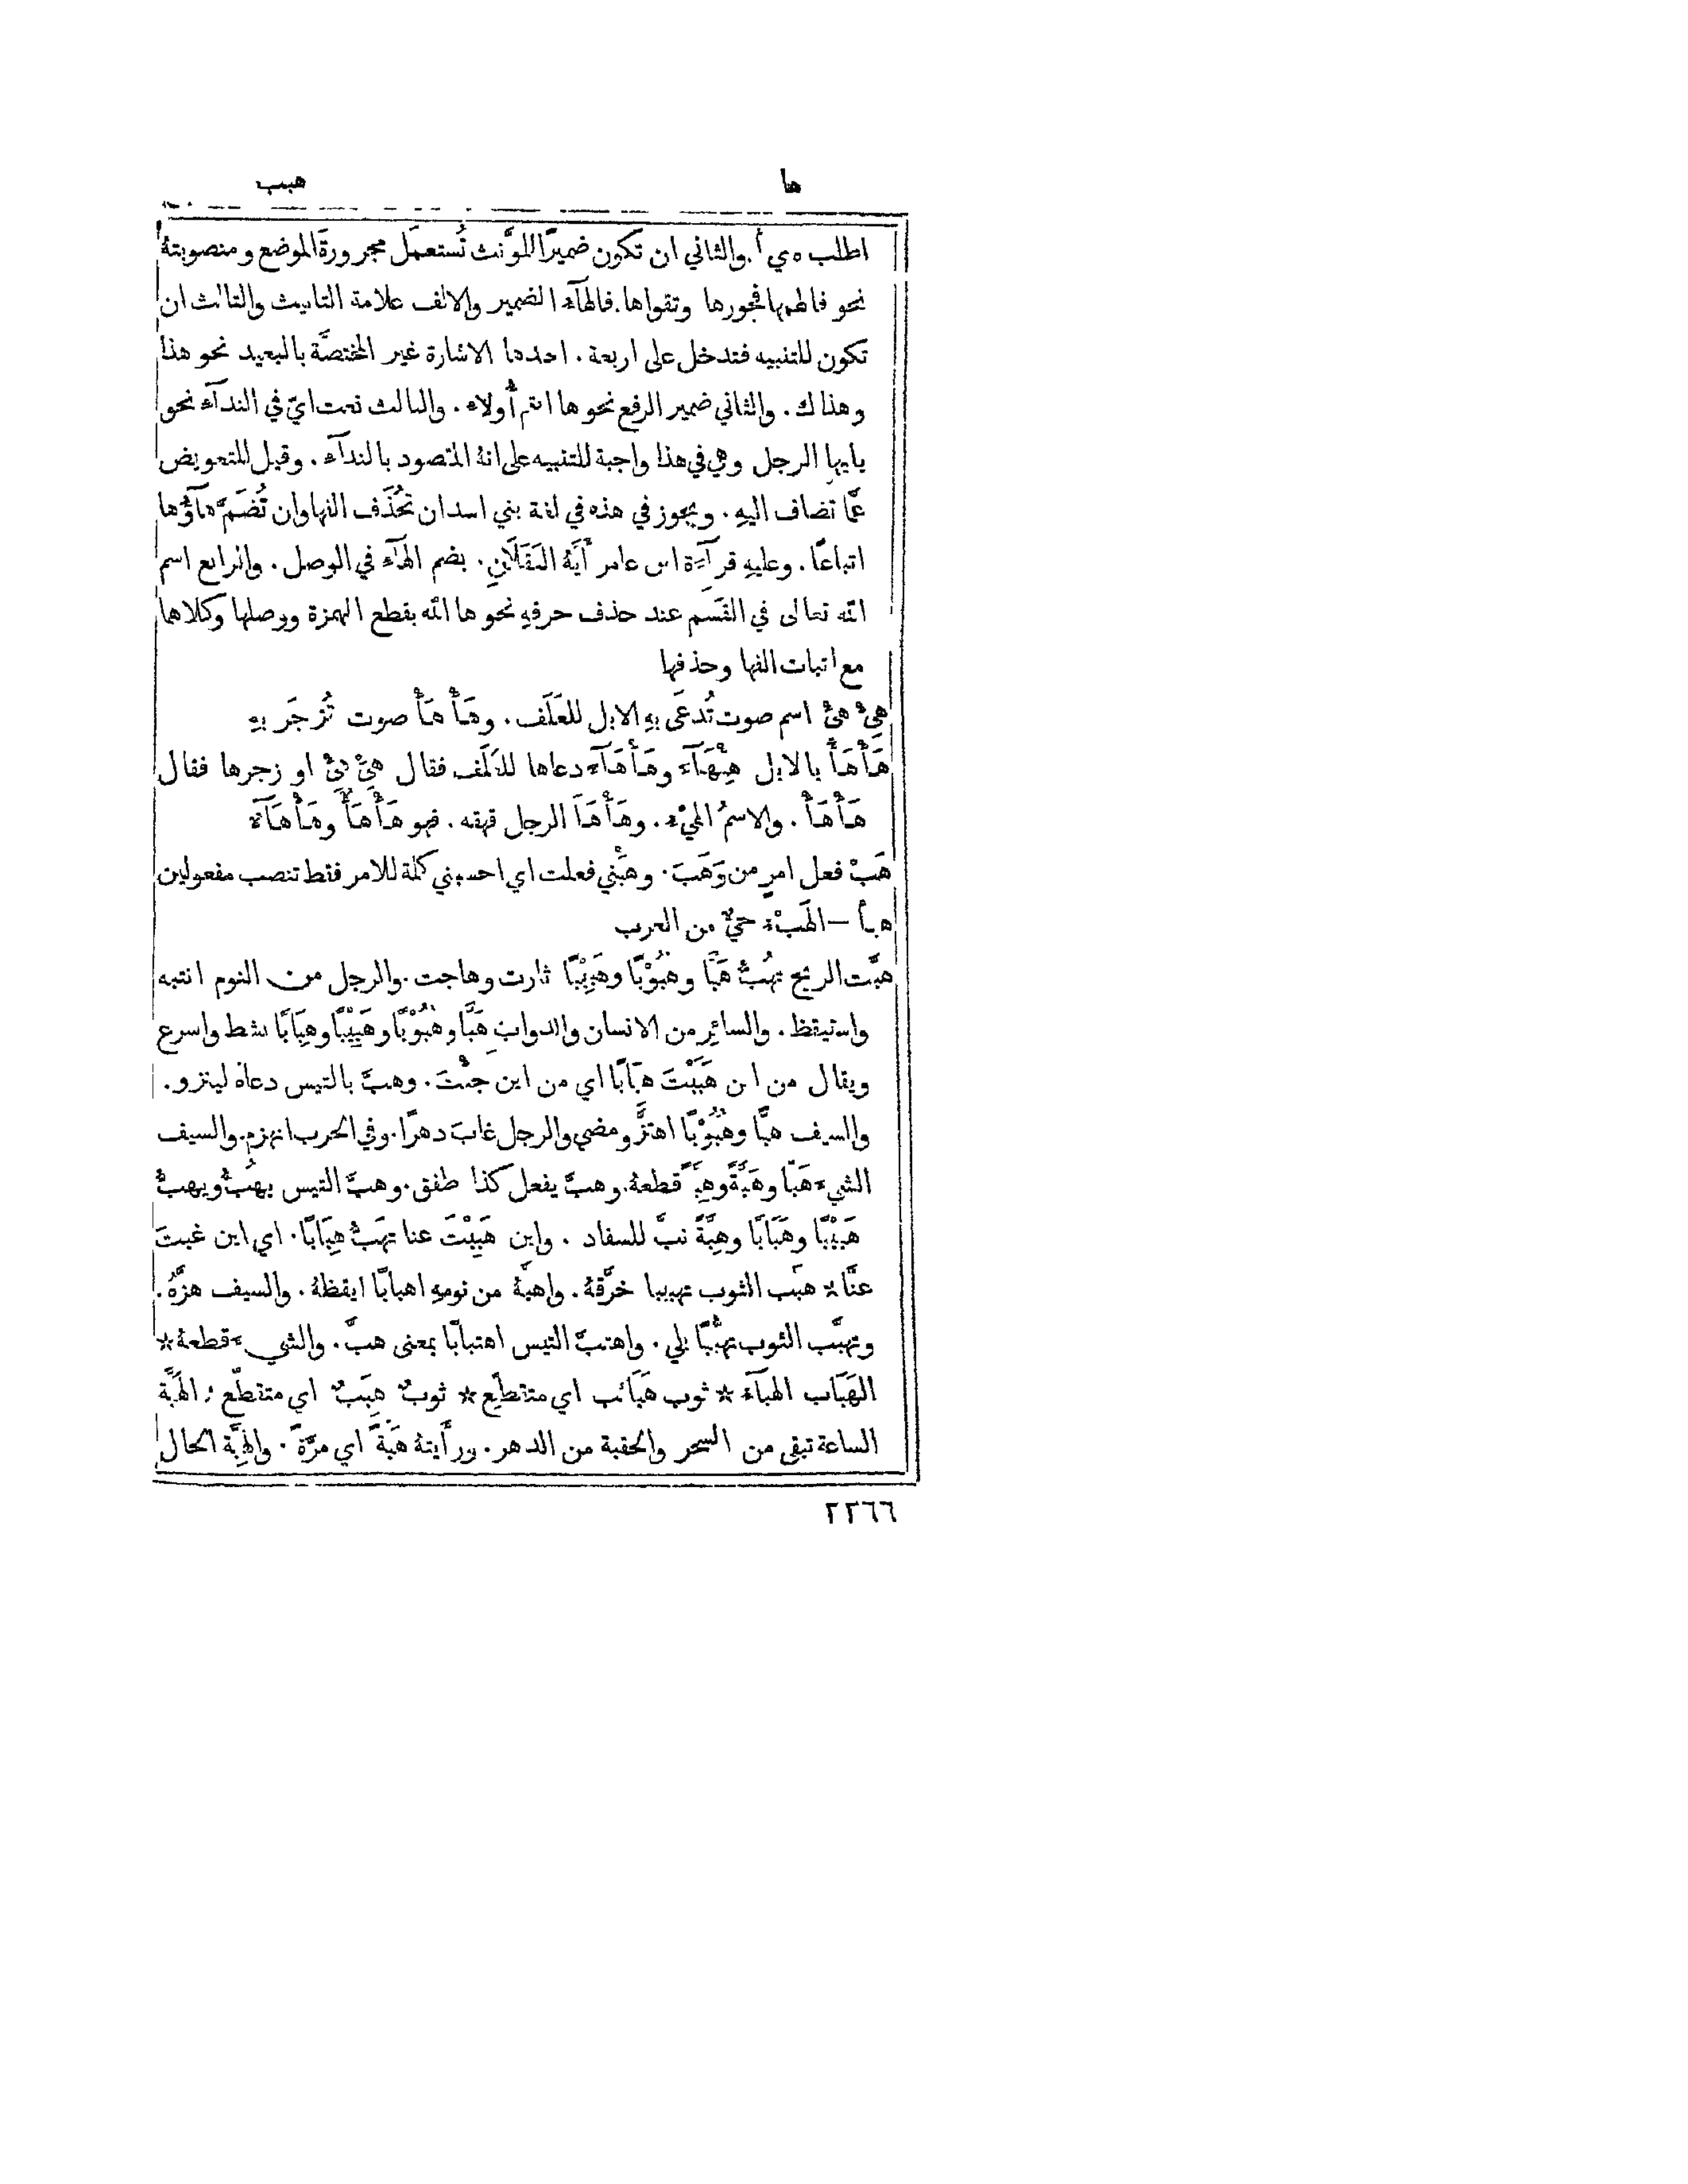 ها هبب
اطلب ه ي أ. والثاني ان تكون ضميرًا للمؤَّنث تُستعمَل مجرورة الموضع ومنصوبتهُ
نحو فالهمها فجورها وتقواها. فالهآء الضمير والالف علامة التانيث والثالث ان
تكون للتنبيه فتدخل على اربعة. احدها الاشارة غير المختصَّة بالبعيد نحو هذا
وهذاك. والثاني ضمير الرفع نحو ها انتم أُولاء. والثالث نعت ايّ في الندآء نحو
يايها الرجل وهي في هذا واجبة للتنبيه على انهُ المقصود بالندآء. وقيل للتعويض
عمَّا تضاف اليهِ. ويجوز في هذه في لغة بني اسد ان تُحذَف الفها وان تُضَمَّ هآؤُها
اتباعًا. وعليهِ قرآءة ابن عامر أَيُّهُ الثَقَلَانِ. بضم الهآء في الوصل. والرابع اسم
الله تعالى في القَسَم عند حذف حرفهِ نحو ها الله بقطع الهمزة ووصلها وكلاها
مع اثبات الفها وحذفها
هِئْ هِئْ اسم صوت تُدعَى بهِ الابل للعَلَف. وهَأْ هَأْ صوت تُزجَر بهِ
هَأْهَأَ بالابل هِئْهَآءً وهَأْهَآءً دعاها للعَلَف فقال هِئْ هِئْ او زجرها فقال
هَأْهَأْ. والاسمُ الهِيْء. وهَأْهَأَ الرجل قهقه. فهو هَأْهَأٌ وهَأْهَآءٌ
هَبْ فعل امرٍ من وَهَبَ. وهَبْني فعلت اي احسبني كلمة للامر فقط تنصب مفعولين
هبأ — الهَبْءُ حيٌّ من العرب
هبَّت الريح تهُبُّ هَبًّا وهُبُوْبًا وهَبِيْبًا ثارت وهاجت. والرجل من النوم انتبه
واستيقظ. والسائر من الانسان والدوابّ هَبًّا وهُبُوْبًا وهَبِيْبًا وهِبَابًا نشط واسرع
ويقال من اين هَبَبْتَ هِبَابًا اي من اين جئْتَ. وهبَّ بالتيس دعاهُ لينزو.
والسيف هبًّا وهُبُوْبًا اهتزَّ ومضى والرجل غابَ دهرًا. وفي الحرب انهزم. والسيف
الشيءَ هَبًّا وهَبَّةً وهِبَّةً قطعهُ. وهبَّ يفعل كذا طفق. وهبَّ التيس يهُبُّ ويهِبُّ
هَبِيْبًا وهَبَابًا وهِبَّةً نبَّ للسفاد. واين هَبِبْتَ عنا تهَبُّ هِبَابًا. اي اين غبتَ
عنَّا ☆ هبَّب الثوب تهبيبا خرَّقهُ. واهبَّهُ من نومهِ اهبابًا ايقظهُ. والسيف هزَّهُ.
وتهبَّب الثوب تهبُّبًا بلي. واهتبَّ التيس اهتبابًا بمعنى هبَّ. والشيءَ قطعهُ ☆
الهَبَاب الهبآء ☆ ثوب هَبَائب اي متقطّع ☆ ثوبٌ هِبَبٌ اي متقطّع ؛ الهَبَّة
الساعة تبقى من السحر والحقبة من الدهر. ورأيتهُ هَبَّةً اي مرَّةً. والهِبَّة الحال
٢٢٦٦